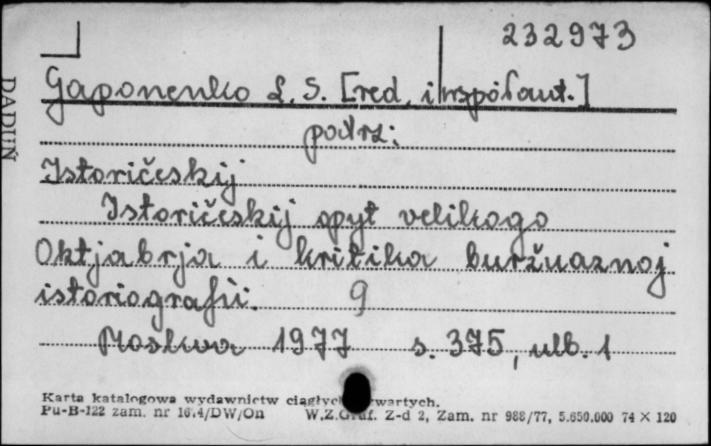 232973
Gaponenko L. S. [red. i współaut.]
patrz:
Istoričeskij
Istoričeskij opyt velikogo
Oktjabrja i kritika buržuaznoj
istoriografii. 9
Moskwa 1977 s. 375, ulb. 1
Karta katalogowa wydawnictw ciągłych
Pu-B-122 zam. nr 16.4/DW/On W.Z.Graf. Z-d 2, Zam. nr 988/77, 5.650.000 74 × 120
DADUŃ